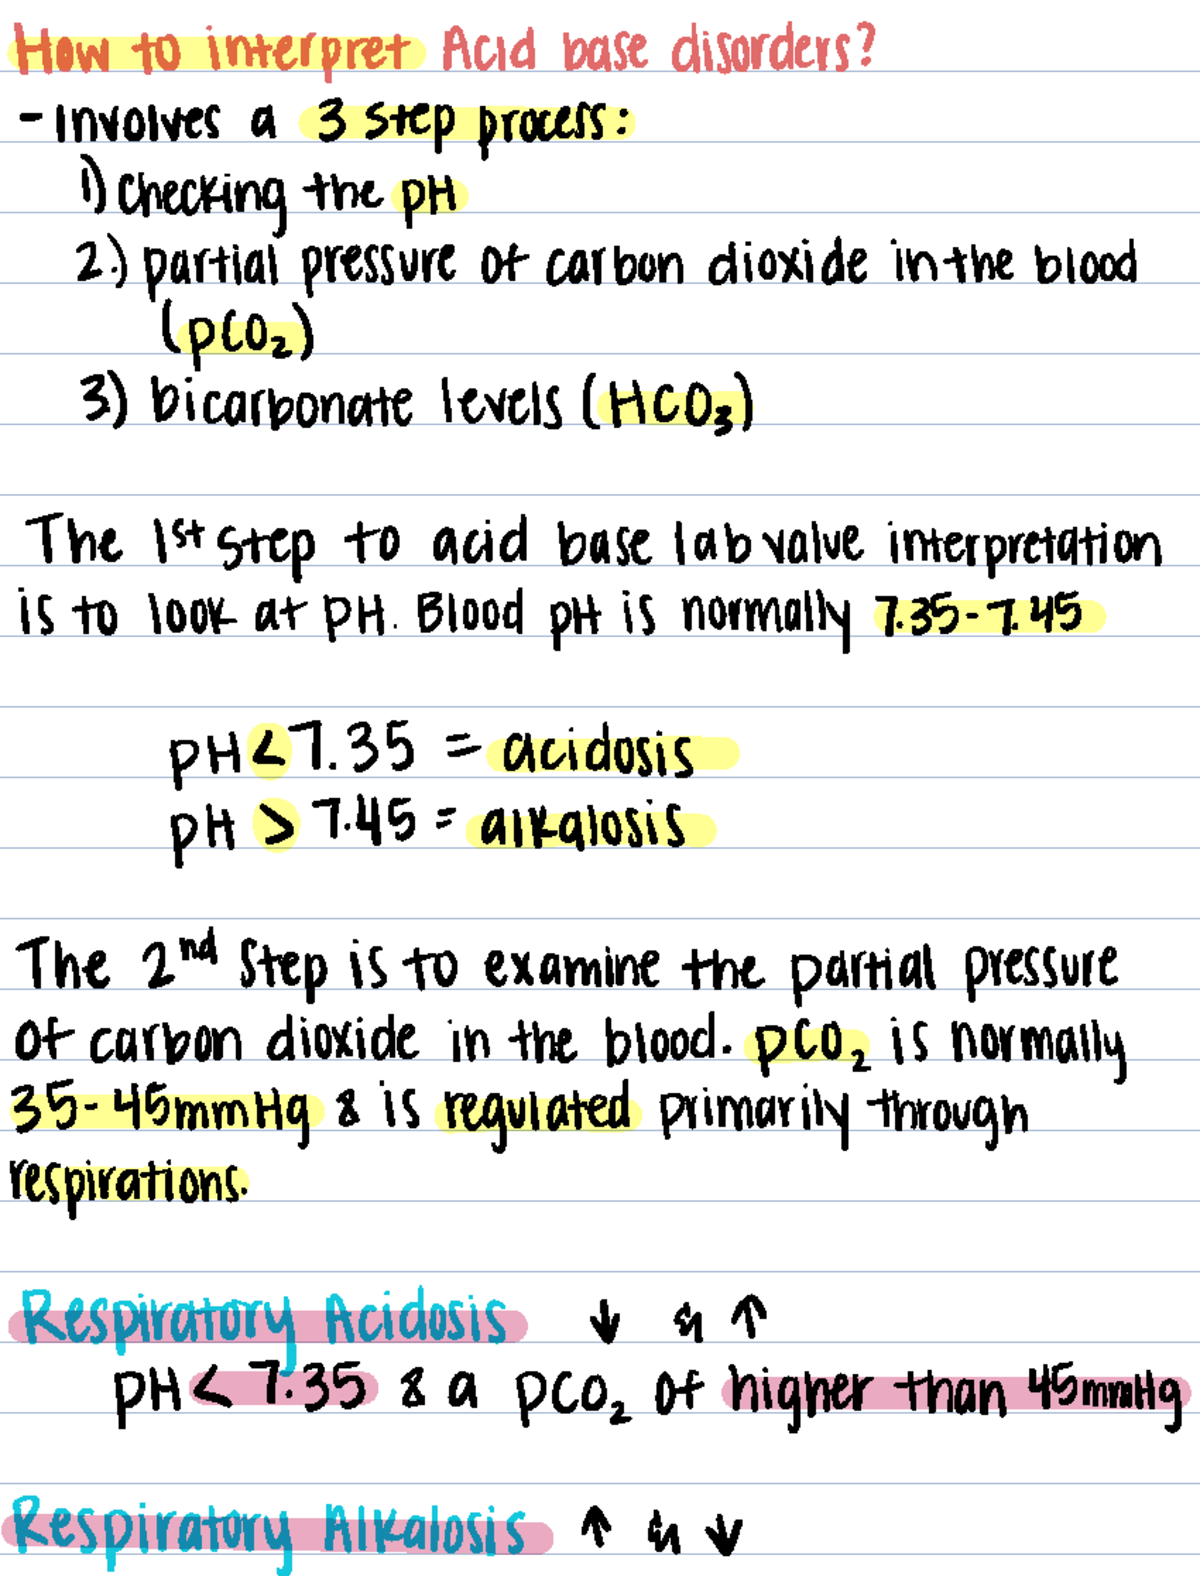 How to interpret Acid base disorders?
- Involves a 3 step process:
1) Checking the pH
2.) partial pressure of carbon dioxide in the blood
(pCO₂)
3) bicarbonate levels (HCO₃)
The 1st step to acid base lab value interpretation
is to look at pH. Blood pH is normally 7.35-7.45
pH < 7.35 = acidosis
pH > 7.45 = alkalosis
The 2nd step is to examine the partial pressure
of carbon dioxide in the blood. pCO₂ is normally
35-45mmHg & is regulated primarily through
respirations.
Respiratory Acidosis ↓ & ↑
pH < 7.35 & a pCO₂ of higher than 45mmHg
Respiratory Alkalosis ↑ & ↓